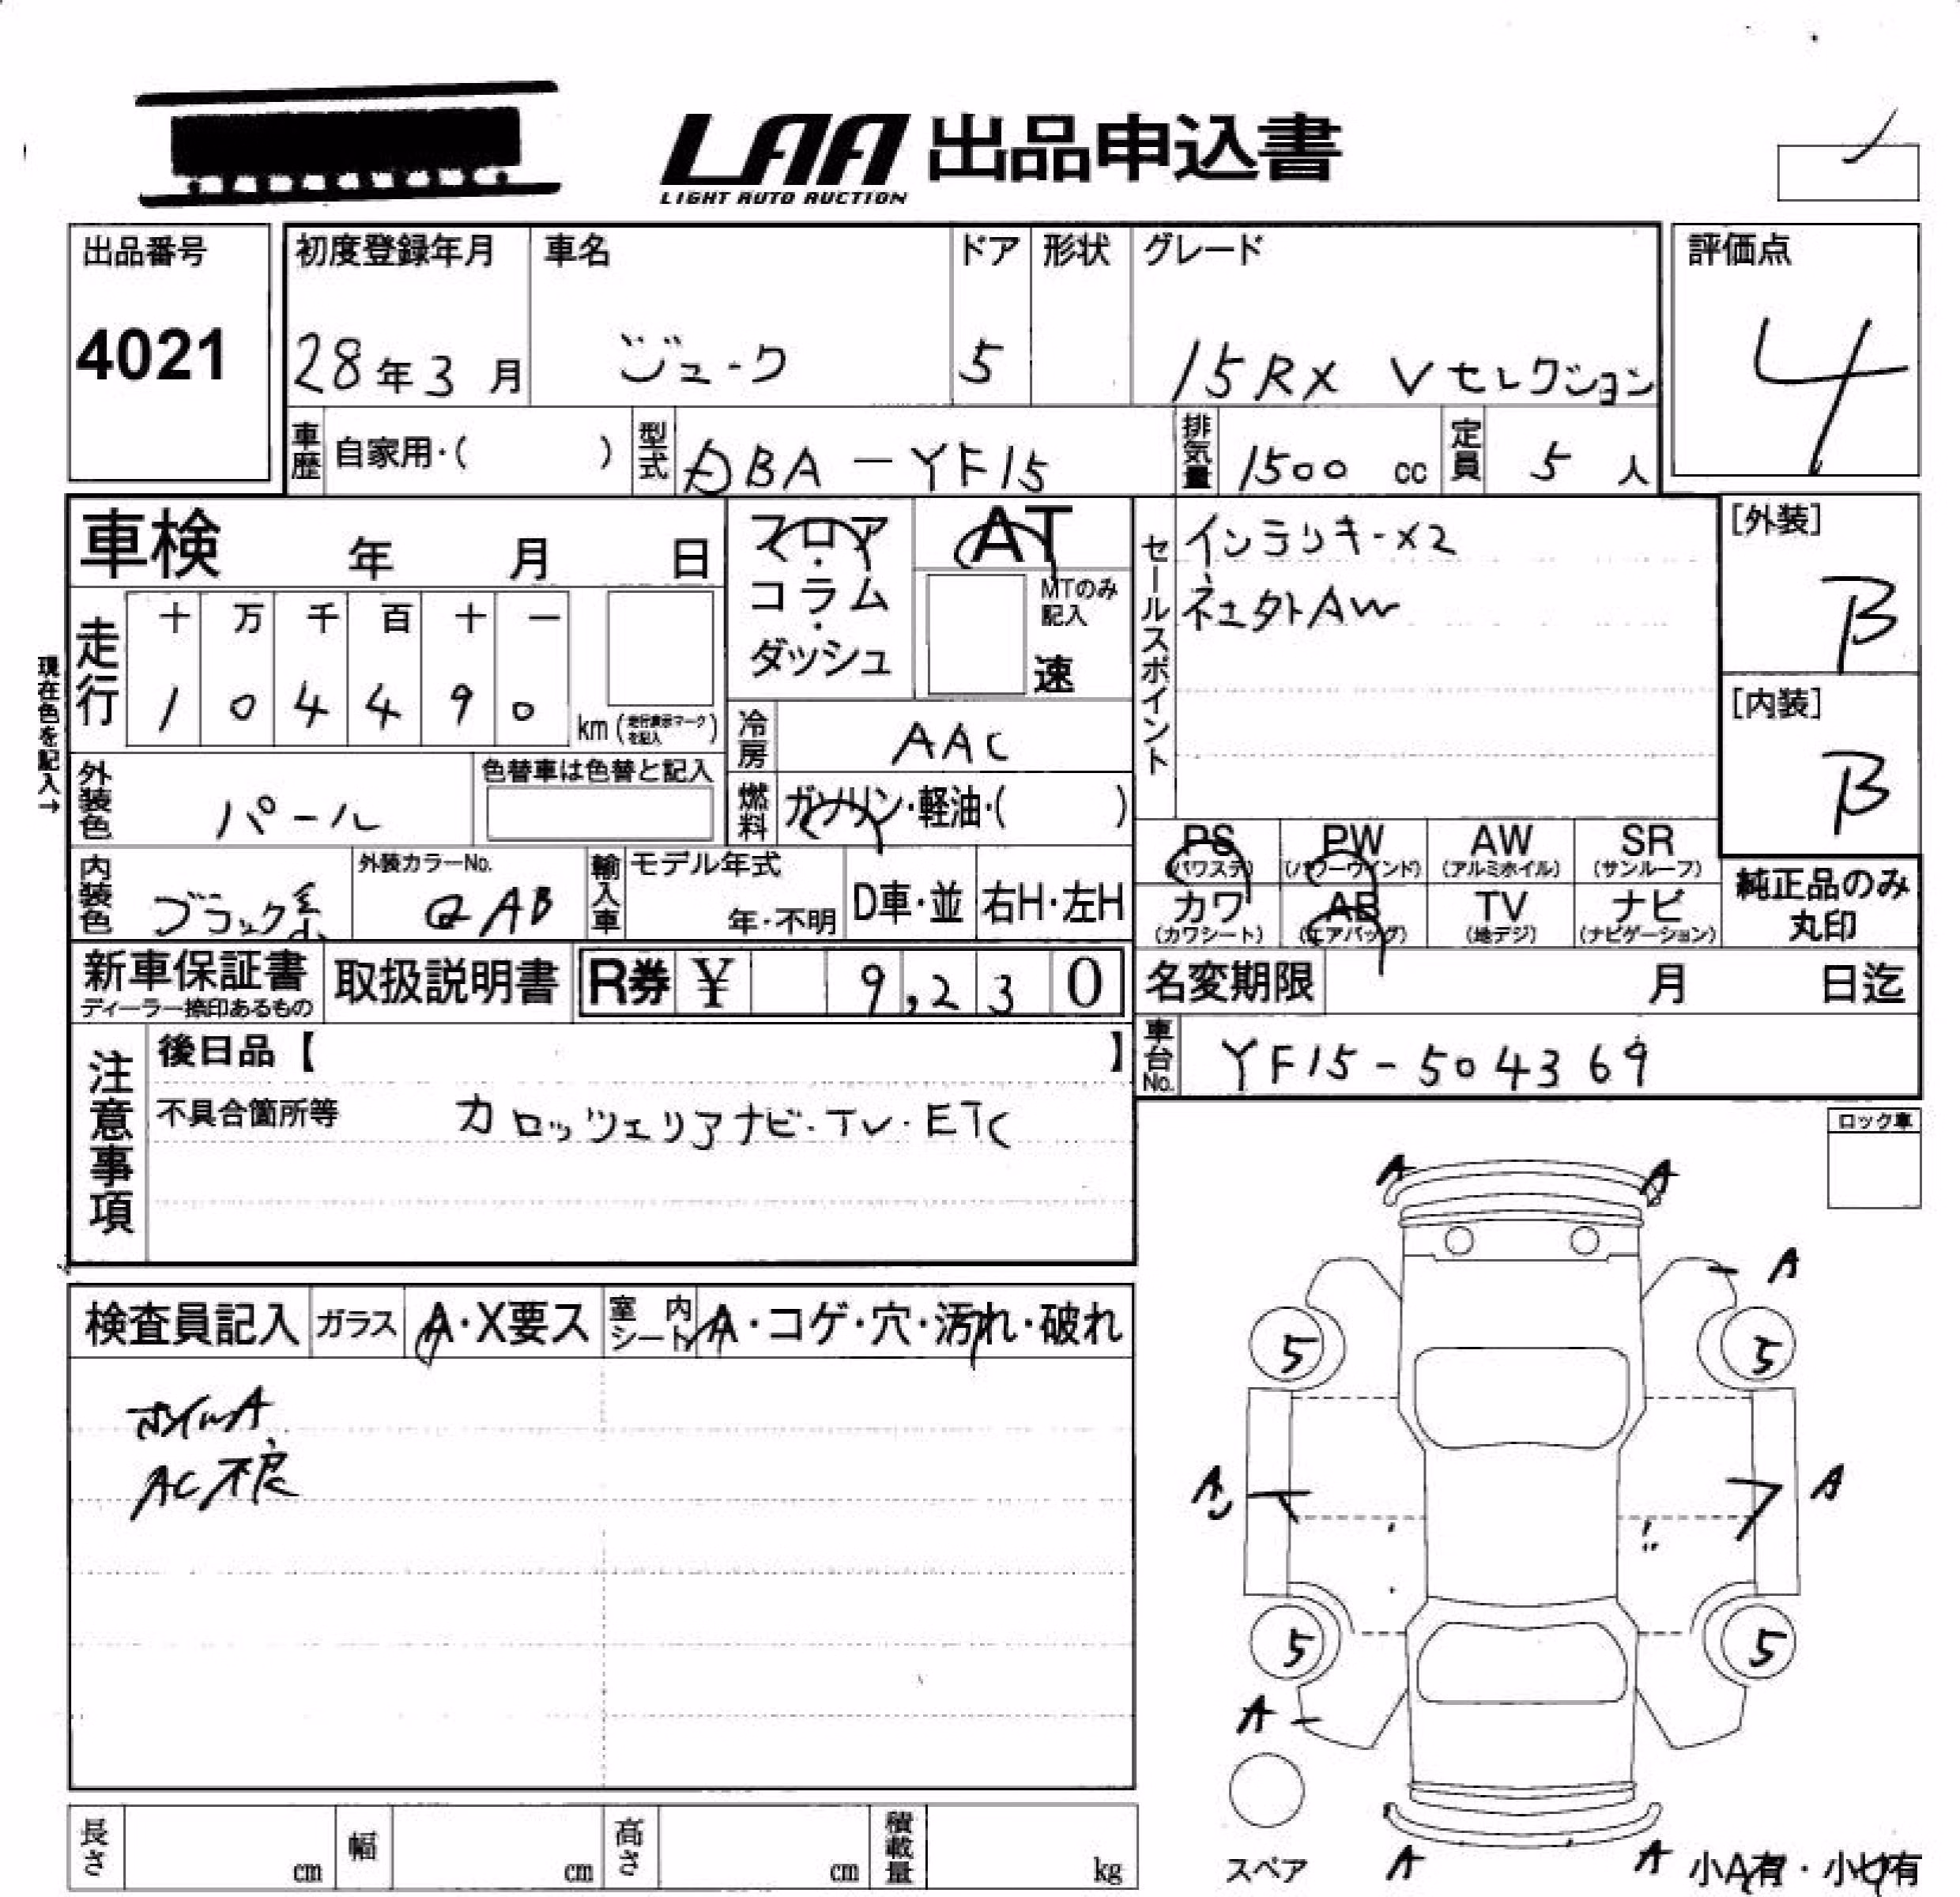 LAA 出品申込書
LIGHT AUTO AUCTION
出品番号
4021
初度登録年月
28年3月
車名
ジューク
ドア
5
形状
グレード
15RX Vセレクション
評価点
4
車歴 自家用・( )
型式 DBA-YF15
排気量 1500 cc
定員 5 人
車検 年 月 日
フロア・コラム・ダッシュ
AT
MTのみ記入
速
現在色を記入→
走行
十 万 千 百 十 一
1 0 4 4 9 0
km (走行表示マークを記入)
冷房 AAC
燃料 ガソリン・軽油・( )
外装色 パール
色替車は色替と記入
内装色 ブラック系
外装カラーNo. QAB
輸入車
モデル年式
年・不明
D車・並
右H・左H
セールスポイント
インテリキーX2
AW
[外装]
B
[内装]
B
PS (パワステ)
PW (パワーウインド)
AW (アルミホイル)
SR (サンルーフ)
カワ (カワシート)
AB (エアバッグ)
TV (地デジ)
ナビ (ナビゲーション)
純正品のみ
丸印
新車保証書
ディーラー捺印あるもの
取扱説明書
R券 ¥ 9,230
名変期限 月 日迄
車台No. YF15-504369
注意事項
後日品【 】
不具合箇所等 カロッツェリアナビ・TV・ETC
ロック車
検査員記入
ガラス A・X要ス
室内シート A・コゲ・穴・汚れ・破れ
ホイルA
AC不良
A A
A
5 5
A A
5 5
A
スペア
A A
小A有・小U有
長さ cm
幅 cm
高さ cm
積載量 kg